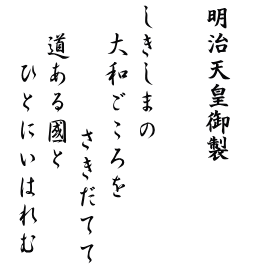 明治天皇御製
しきしまの
大和ごころを
さきだてて
道ある國と
ひとにいはれむ